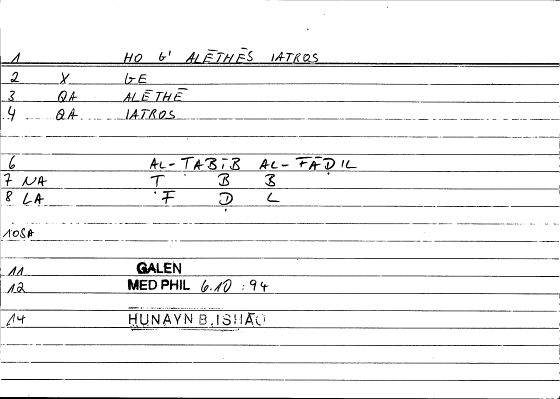 1 HO G' ALĒTHĒS IATROS
2 X GE
3 QA ALĒTHĒ
4 QA IATROS
6 AL-ṬABĪB AL-FĀḌIL
7 NA Ṭ B B
8 LA F Ḍ L
10SA
11 GALEN
12 MED PHIL 6.10 :94
14 HUNAYN B. ISHĀQ